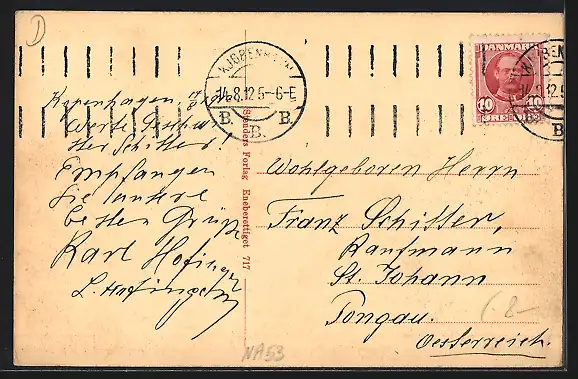 D
KJØBENHAVN
14.8.12 5-6 E
B. B.
B.
DANMARK
10 10
KJØBENHAVN
14.8.12 5
B
Kopenhagen,
Werte Geschw.
Schitter!
Empfangen
Sie unsere
besten Grüße
Karl Hofinger
L. Hofinger
Stenders Forlag Eneberettiget 717
Wohlgeboren Herrn
Franz Schitter,
Kaufmann
St. Johann
Pongau.
Oesterreich.
8-
NA53